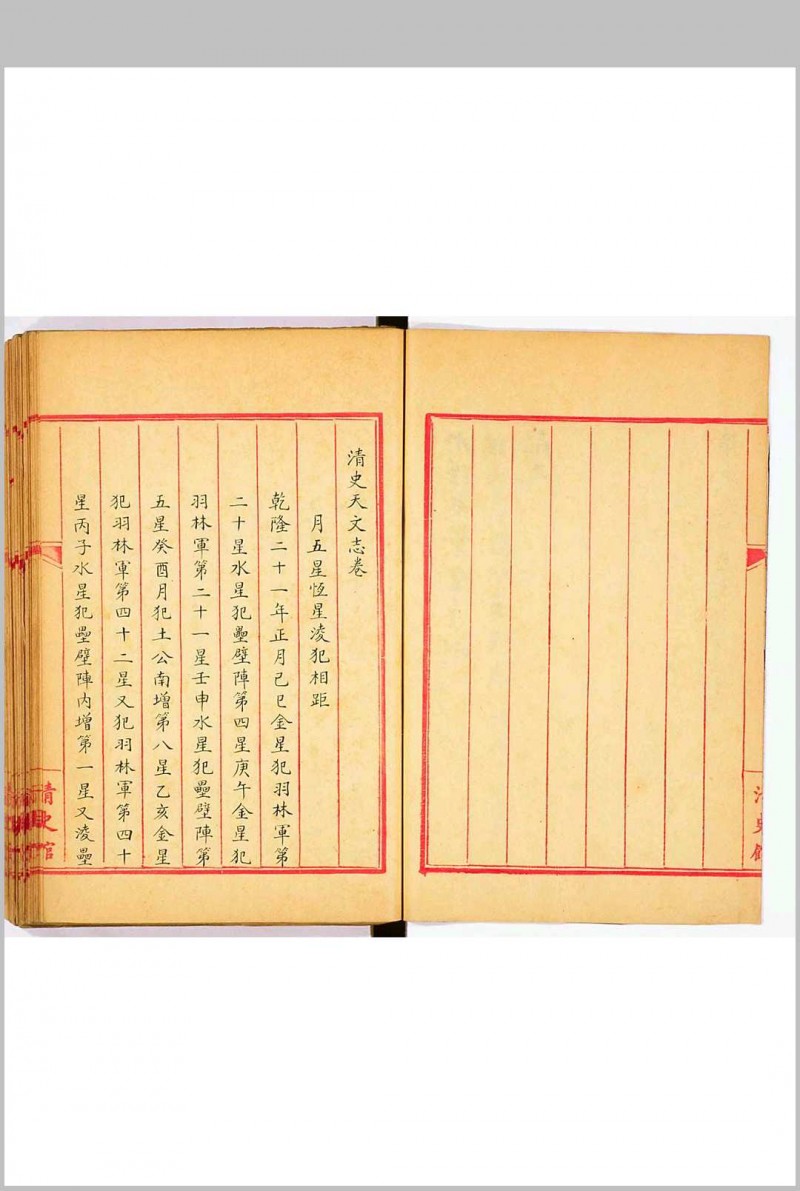 清史天文志卷
月五星恆星淩犯相距
乾隆二十一年正月己巳金星犯羽林軍第
二十星水星犯壘壁陣第四星庚午金星犯
羽林軍第二十一星壬申水星犯壘壁陣第
五星癸酉月犯土公南增第八星乙亥金星
犯羽林軍第四十二星又犯羽林軍第四十
星丙子水星犯壘壁陣內增第一星又淩壘
清史館